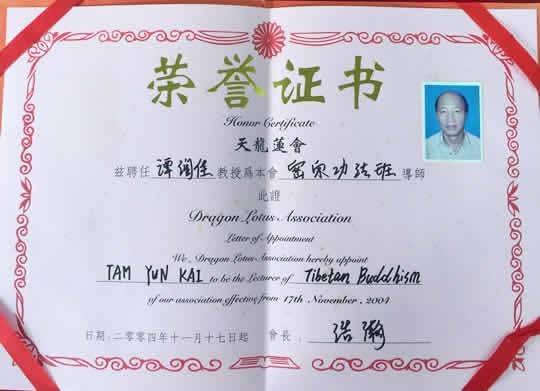 荣誉证书
Honor Certificate
天龍蓮會
兹聘任 譚润佳 教授爲本會 密宗功法班 導師
此證
Dragon Lotus Association
Letter of Appointment
We, Dragon Lotus Association hereby appoint
TAM YUN KAI to be the Lecturer of Tibetan Buddhism
of our association effective from 17th November, 2004
日期:二零零四年十一月十七日起 會長, 浩瀚